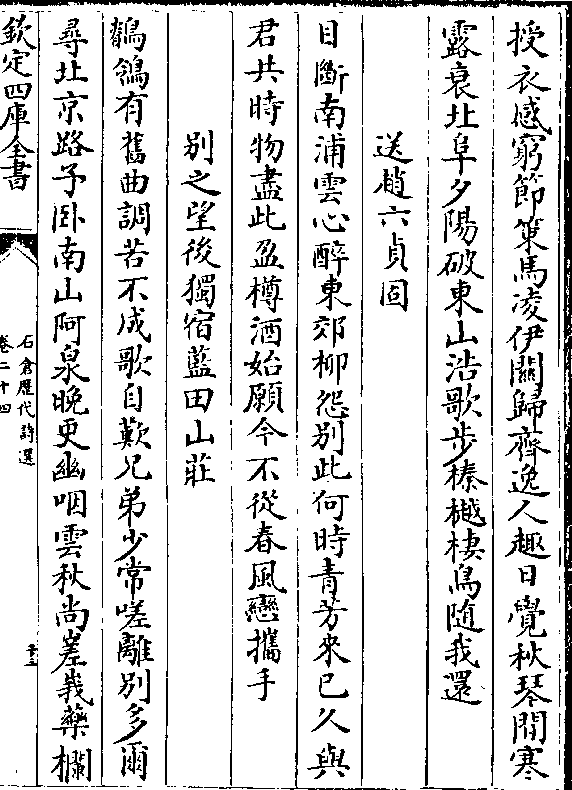 授衣感窮節策馬凌伊關歸齊逸人趣日覺秋琴閒寒
露衰北阜夕陽破東山浩歌步榛樾棲鳥随我還
送趙六貞固
目斷南浦雲心醉東郊柳怨别此何時青芳來已久與
君共時物盡此盈樽酒始願今不從春風戀攜手
别之望後獨宿藍田山莊
鶺鴒有舊曲調苦不成歌自歎兄弟少常嗟離别多爾
尋北京路予卧南山阿泉晚更幽咽雲秋尚嵳峩藥欄
欽定四庫全書
石倉歴代詩選
卷二十四